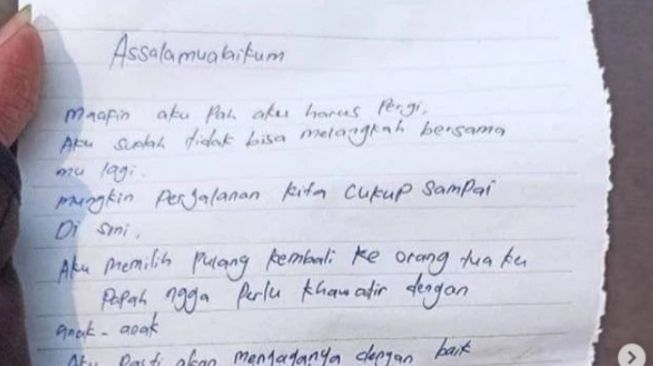 Assalamualaikum
maafin aku pah aku harus pergi.
Aku sudah tidak bisa melangkah bersama
mu lagi.
mungkin perjalanan kita cukup sampai
Di sini.
Aku memilih pulang kembali ke orang tua ku
papah ngga perlu khawatir dengan
anak-anak
Aku pasti akan menjaganya dengan baik